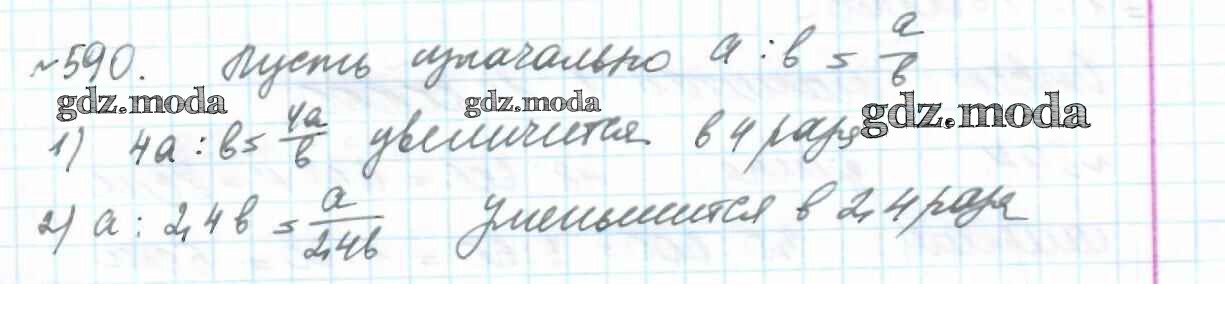 №590. Пусть изначально a : b = a/b
gdz.moda gdz.moda gdz.moda
1) 4a : b = 4a/b увеличится в 4 раза
2) a : 2,4b = a/2,4b уменьшится в 2,4 раза